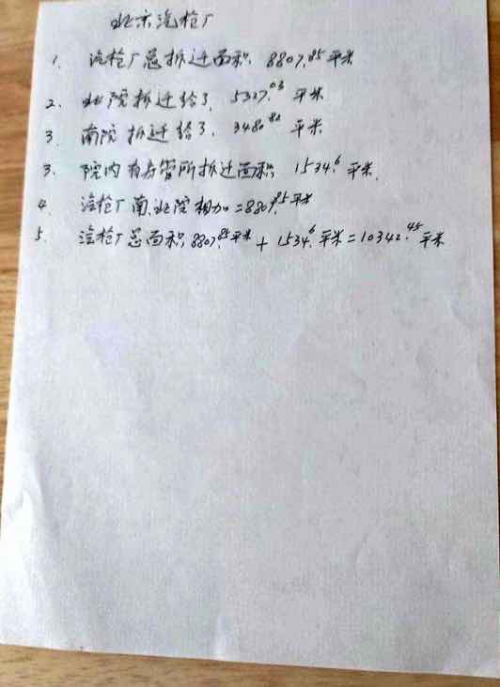 北京汽枪厂
1. 汽枪厂总拆迁面积 8807.85平米
2. 北院拆迁给了 5327.03 平米
3. 南院拆迁给了 3480.82 平米
3. 院内有房管所拆迁面积 1534.6 平米
4. 汽枪厂南北院相加=8807.85平米
5. 汽枪厂总面积8807.85平米+1534.6平米=10342.45平米